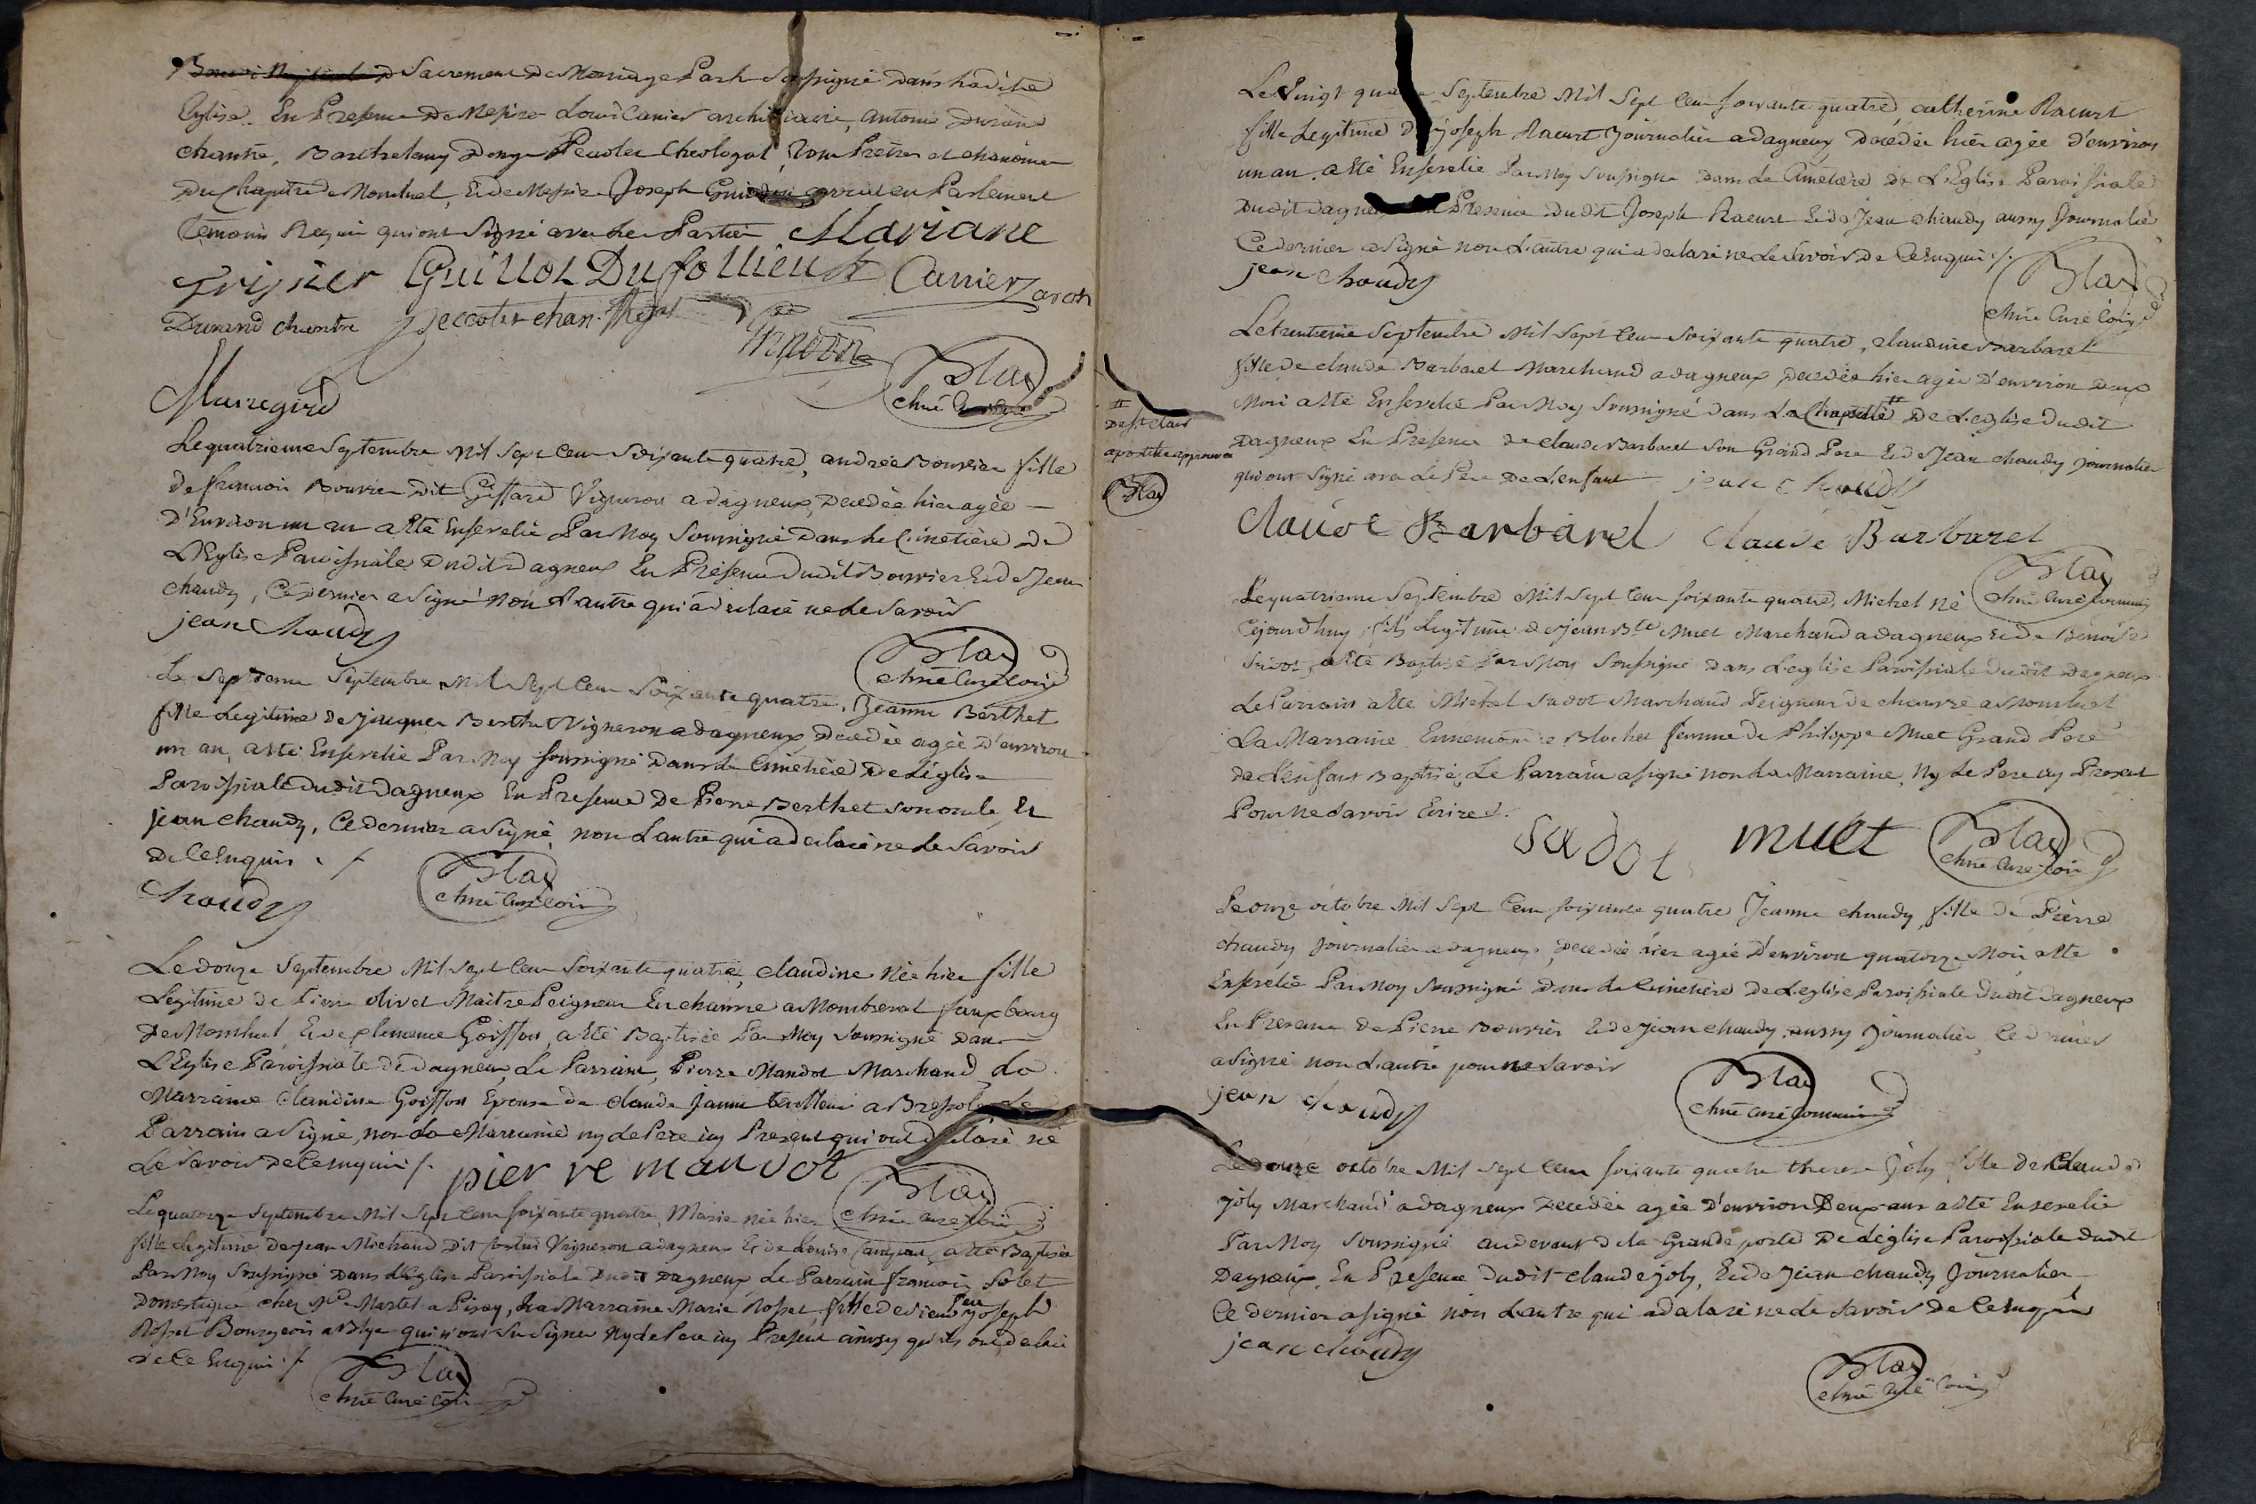 Sacrement de Mariage Par le Soussigné dans la dite
Eglise. En Presence De Messire Louis Carrier archiviaire, antoine Durand
chantre, Barthelemy Donz Peccolet Theologal, Tous Pretres et chanoines
Du Chapitre de Montluel, Et de Messire Joseph avocat en Parlement
Temoins Requis qui ont Signé avec les Parties Mariane
Trijnier Guillot Dufollieux Carrier arch
Durand chantre Peccolet chan. Thegal
Blay
chne
Marregird
Le quatrieme Septembre Mil Sept Cent Soixante quatre, andrée Bouvier fille
de francois Bouvier Dit Giffard Vigneron a dagneux, Decedée hier agée
D'Environ un an a Eté Enseveliè Par Moy Soussigné Dans Le Cimetière De
L'Eglise Paroissiale Dudit Dagneux En Presence dudit Bouvier Et de Jean
chaudy, Ce dernier a Signé non L'autre qui a declaré ne le Savoir
jean Chaudy
Blay
chne Curé Coin
Le Septieme Septembre Mil Sept Cent Soixante quatre, Jeanne Berthet
fille Legitime De jacques Berthet Vigneron a dagneux Decedée agée D'environ
un an, a eté Enseveliè Par Moy soussigné Dans le Cimetière De L'église
Paroissiale dudit Dagneux En Presence De Pierre Berthet son oncle Et
jean chaudy, Ce dernier a Signé, non L'autre qui a declaré ne le Savoir
De Ce Enquis
Chaudy
Blay
chne Curé Coin
Le douze Septembre Mil Sept Cent Soixante quatre, claudine Née hier fille
Legitime de Pierre olivet Maitre Peigneur En chanvre a Montserat fauxbourg
De Montluel, Et de clemence Goiffon, a Eté Baptisée Par Moy Soussigné Dans
L'Eglise Paroissiale de Dagneux, Le Parrain, Pierre Mandot Marchand, La
Marraine Claudine Goiffon Epouse de claude a Bressolle, Le
Parrain a Signé, non La Marraine ny le Pere icy Present qui ont declaré ne
Le Savoir De Ce enquis
pierre mandot
Blay
chne Curé Coin
Le quatorze Septembre Mil Sept Cent soixante quatre, Marie née hier
fille Legitime de Jean Michaud Dit Vigneron a dagneux Et de Louise a Eté Baptisée
Par Moy Soussigné Dans L'Eglise Paroissiale Dudit Dagneux, Le Parrain francois Solet
Domestique chez Mr. Martel a Pisay, La Marraine Marie Rosset, fille de sieur feu joseph
Rosset Bourgeois a Blye qui n'ont Su Signer Ny le Pere icy Present ainsy qu'ils ont declaré
De Ce Enquis
Blay
chne Curé Coin
Le Vingt quatre Septembre Mil Sept Cent soixante quatre, catherine Racurt
fille Legitime De joseph Racurt Journalier a dagneux Decedée hier agée d'environ
un an, a Eté Enseveliè Par Moy Soussigné Dans Le Cimetiere De L'Eglise Paroissiale
Dudit dagneux En Presence Dudit Joseph Racurt Et de Jean chaudy aussy Journalier
Ce dernier a Signé non L'autre qui a declaré ne Le Savoir De Ce enquis
jean chaudy
Blay
chne Curé Coin
Le trentieme Septembre Mil Sept Cent Soixante quatre, claudine Barbaret
fille de claude Barbaret Marchand a dagneux, Decedée hier agée d'environ deux
Mois a Eté Enseveliè Par Moy Soussigné Dans La Chapelle # De L'eglise Dudit
Dagneux En Presence de claude Barbaret Son Grand Pere Et de Jean chaudy journalier
qui ont Signé avec Le Pere De L'enfant jean chaudy
# De St clair
apostille approuvée
Blay
claude Barbarel claude Barbarel
Blay
chne Curé Commis
Le quatrieme Septembre Mil Sept Cent soixante quatre, Michel né
Cejourd'huy, fils Legitime de jean Bte Muet Marchand a dagneux Et de Benoite
Sadot, a Eté Baptisé Par Moy Soussigné Dans L'eglise Paroissiale Dudit Dagneux
Le Parrain a Eté Michel Sadot Marchand Peigneur de chanvre a Montluel
La Marraine Ennemonde Blochet femme de Philippe Muet Grand Pere
de L'enfant Baptisé, Le Parrain a signé non La Marraine, Ny Le Pere icy Present
Pour Ne Savoir Ecrire.
Sadot muet Blay
chne Curé Coin
Le onze octobre Mil Sept Cent soixante quatre Jeanne chaudy, fille de Pierre
chaudy Journalier a dagneux, Decedée hier agée D'environ quatorze Mois a Eté
Enseveliè Par Moy Soussigné Dans le Cimetière De L'eglise Paroissiale Dudit Dagneux
En Presence de Pierre Bouvier Et de Jean chaudy aussy Journalier, Ce dernier
a Signé non L'autre pour ne Savoir
jean chaudy
Blay
chne Curé Commis
Le douze octobre Mil Sept Cent soixante quatre therese joly, fille de Claude
joly Marchand a dagneux Decedée agée d'environ Deux ans a Eté Enseveliè
Par Moy Soussigné au devant de la Grande porte De L'église Paroissiale dudit
Dagneux, En Presence Dudit claude joly, Et de Jean chaudy Journalier
Ce dernier a signé non L'autre qui a declaré ne Le Savoir de Ce enquis
jean chaudy
Blay
chne Curé Coin